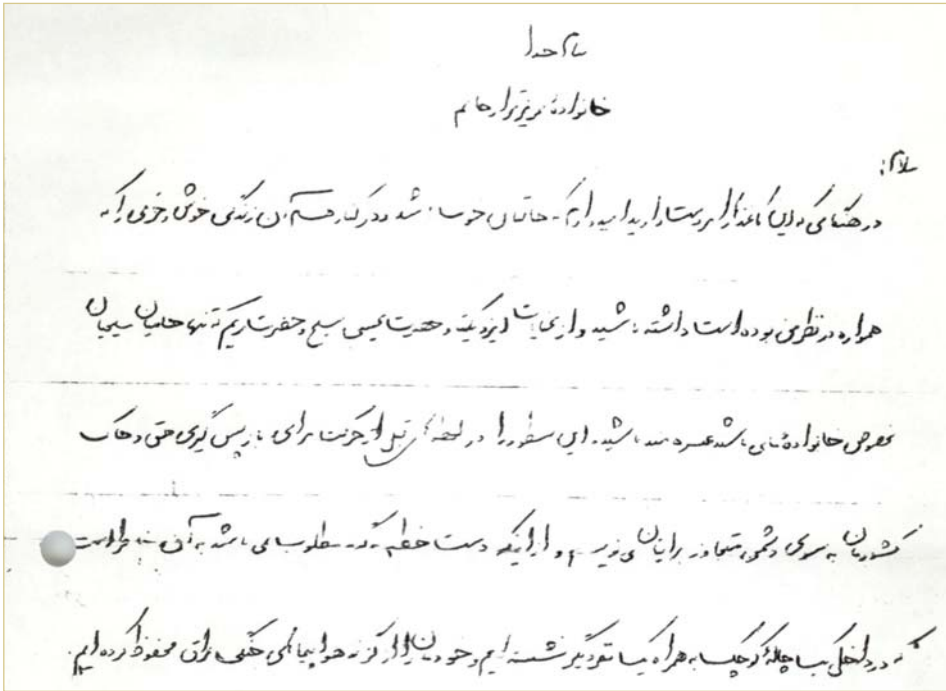 بنام خدا
خانوادهٔ عزیزتر از جانم
سلام:
در هنگامی که این کاغذ را بدست دارید امیدوارم که حالتان خوب باشد و در کنار هم آن زندگی خوش و خرمی را که
همواره در نظر من بوده است داشته باشید و از عنایات ایزد یکتا و حضرت عیسی مسیح و حضرت مریم که تنها حامیان مسیحیان
بخصوص خانوادهٔ ما می باشند بهره مند باشید. این سطور را در لحظه های قبل از حرکت برای باز پس گیری حق و خاک
کشورمان به سوی دشمن متجاوز برایتان می نویسم و از اینکه دست خطم نامطلوب می باشد به آن خاطر است
که در داخل یک چاله کوچک به همراه یک نفر دیگر نشسته ایم و خودمان را از گزند هواپیماهای جنگی عراق محفوظ کرده ایم.